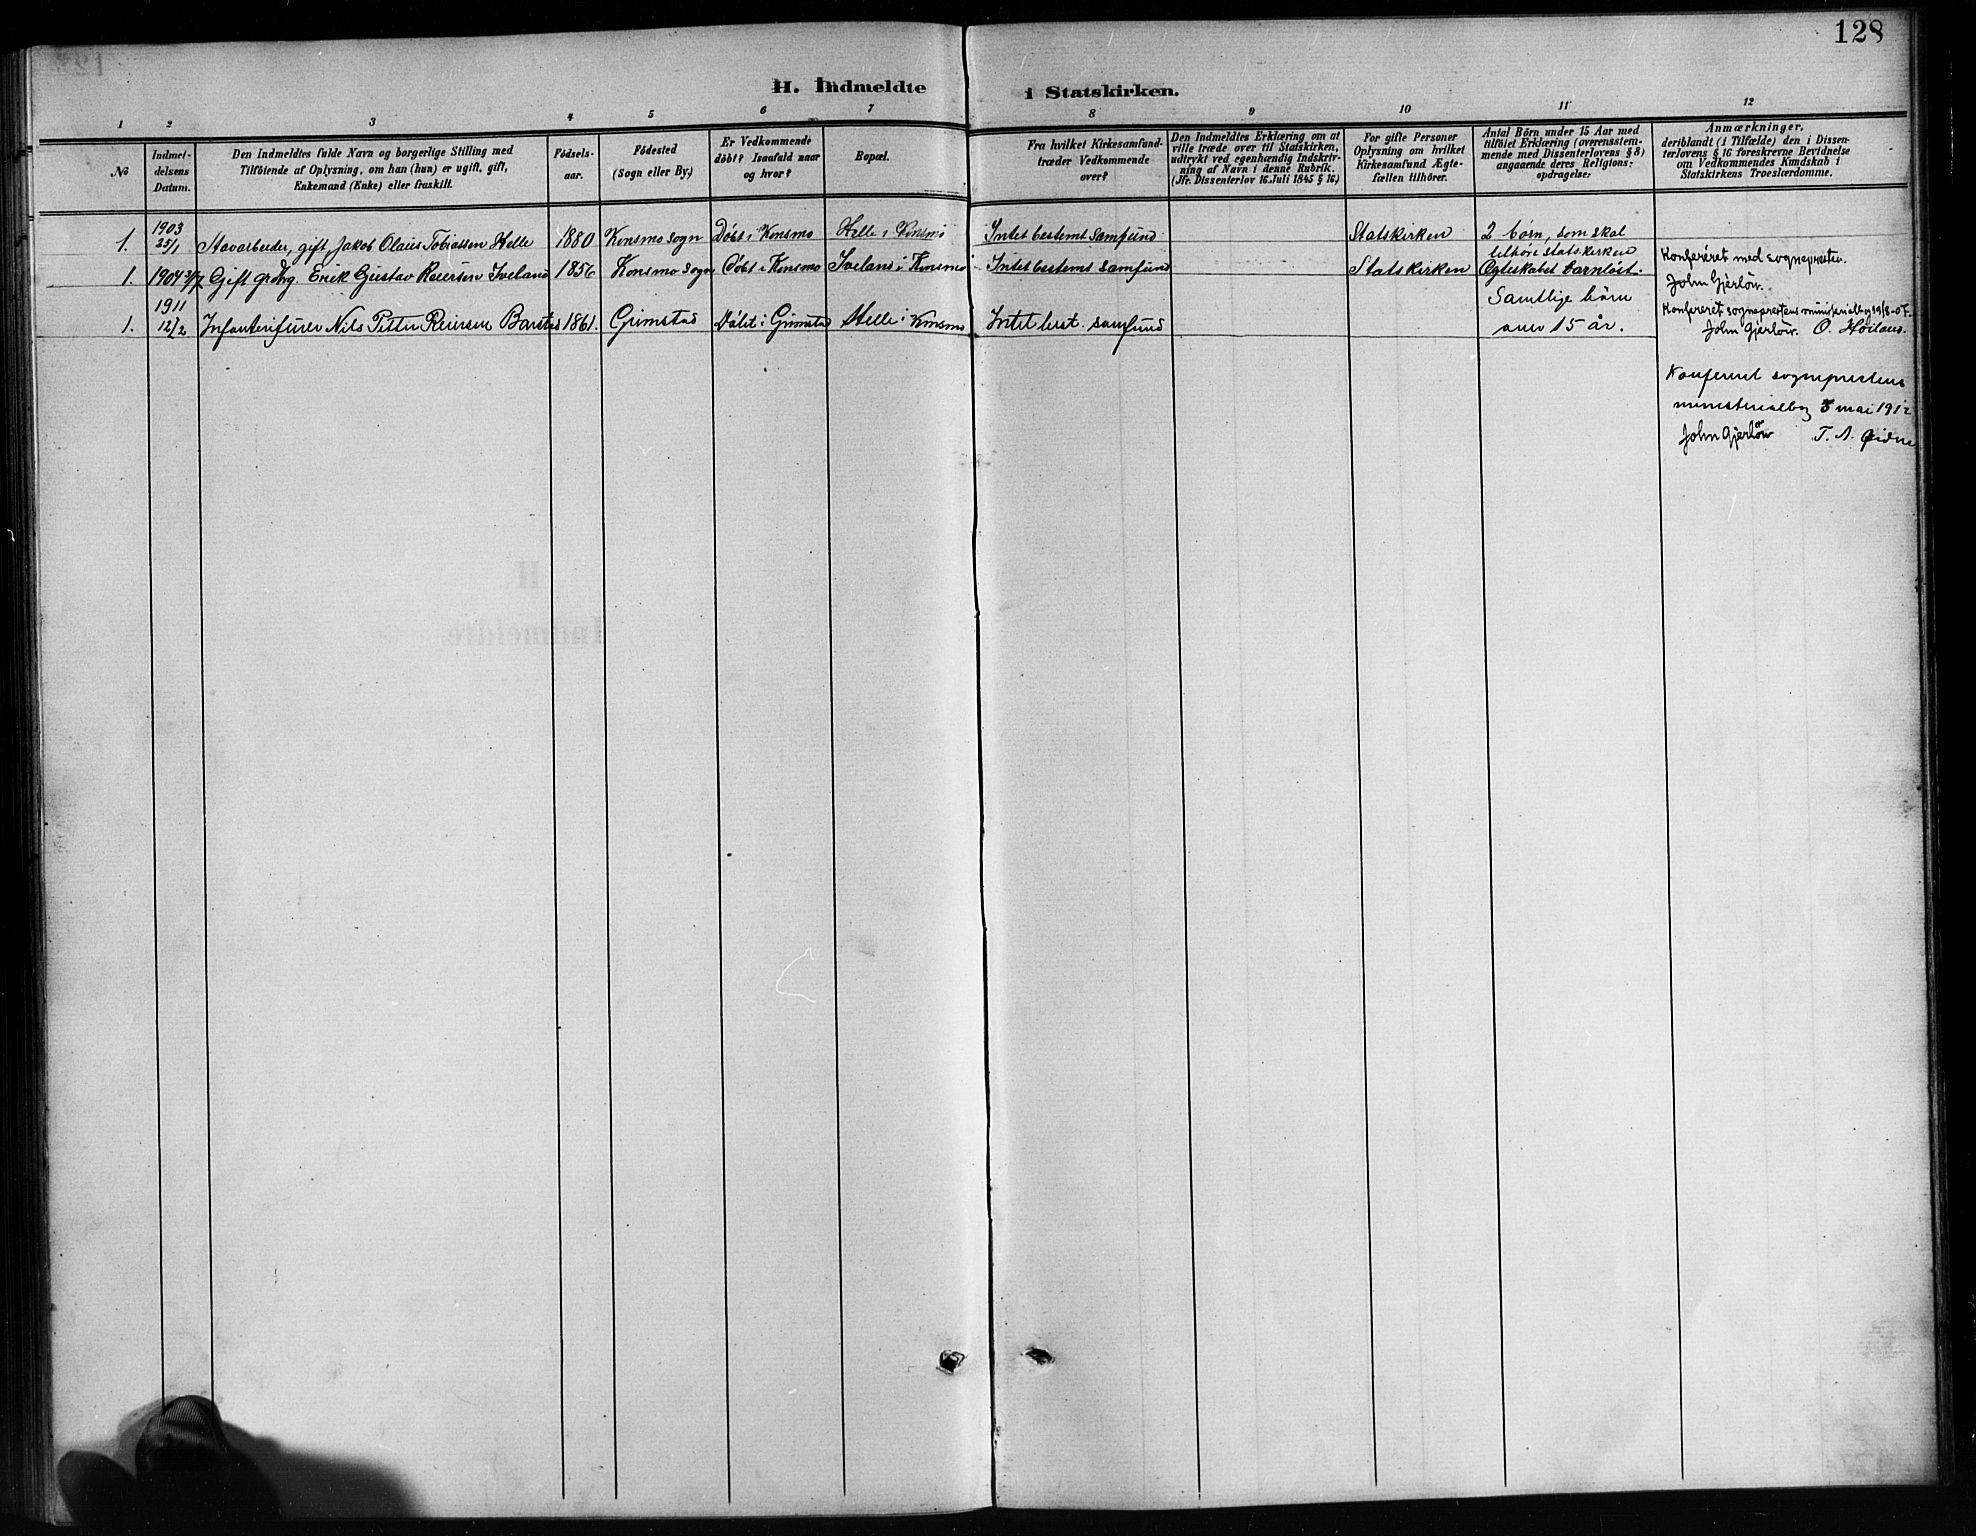 128
H. Indmeldte i Statskirken.
1 2 3 4 5 6 7 8 9 10 11 12
No
Indmel-
delsens
Datum.
Den Indmeldtes fulde Navn og borgerlige Stilling med
Tilföiende af Oplysning, om han (hun) er ugift, gift,
Enkemand (Enke) eller fraskilt.
Födsels-
aar.
Födested
(Sogn eller By.)
Er Vedkommende
döbt? Isaafald naar
og hvor?
Bopæl.
Fra hvilket Kirkesamfund-
træder Vedkommende
over?
Den Indmeldtes Erklæring om at
ville træde over til Statskirken,
udtrykt ved egenhændig Indskriv-
ning af Navn i denne Rubrik.
(Jfr. Dissenterlov 16. Juli 1845 § 16.)
For gifte Personer
Oplysning om hvilket
Kirkesamfund Ægte-
fællen tilhörer.
Antal Börn under 15 Aar med
tilföiet Erklæring (overensstem-
mende med Dissenterlovens § 8)
angaaende deres Religions-
opdragelse:
Anmærkninger,
deriblandt (i Tilfælde) den i Dissen-
terlovens § 16 foreskrevne Bevidnelse
om Vedkommendes Kundskab i
Statskirkens Troeslærdomme.
1903
1. 25/1 Havarbeider, gift, Jakob Olaus Tobiassen Helle 1880 Konsmo sogn Döbt i Konsmo Helle i Konsmo Intet bestemt samfund Statskirken 2 börn, som skal
tilhöre statskirken
1. 1904 3/7 Gift grdbrg. Erik Gustav Reiersen Iveland 1856 Konsmo sogn Döbt i Konsmo Iveland i Konsmo Intet bestemt samfund Statskirken Ægteskabet barnlöst.
Konfereret med sognepresten.
John Gjerlöw.
1911
1. 12/2 Infanterifurer Nils Petter Reiersen Barstad 1861. Grimstad Döbt i Grimstad Helle i Konsmo Intet best. samfund Samtlige börn
over 15 år.
Konfereret sogneprestens ministerialbog 19/8-07.
John Gjerlöw. O. Höiland.
Konfereret sogneprestens
ministerialbog 3 mai 1912
John Gjerlöw T. A. Øidne